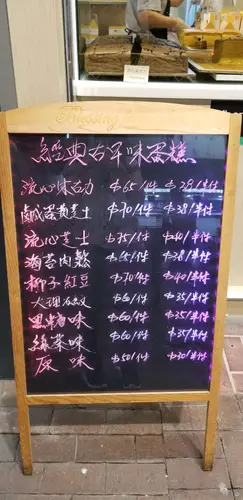 Blessing
經典古早味蛋糕
流心朱古力 $65/1件 $38/半件
鹹蛋黃芝士 $70/1件 $38/半件
流心芝士 $75/1件 $40/半件
海苔肉鬆 $65/1件 $38/半件
椰子紅豆 $70/1件 $40/半件
大理石紋 $60/1件 $35/半件
黑糖味 $60/1件 $35/半件
綠茶味 $60/1件 $35/半件
原味 $50/1件 $30/半件